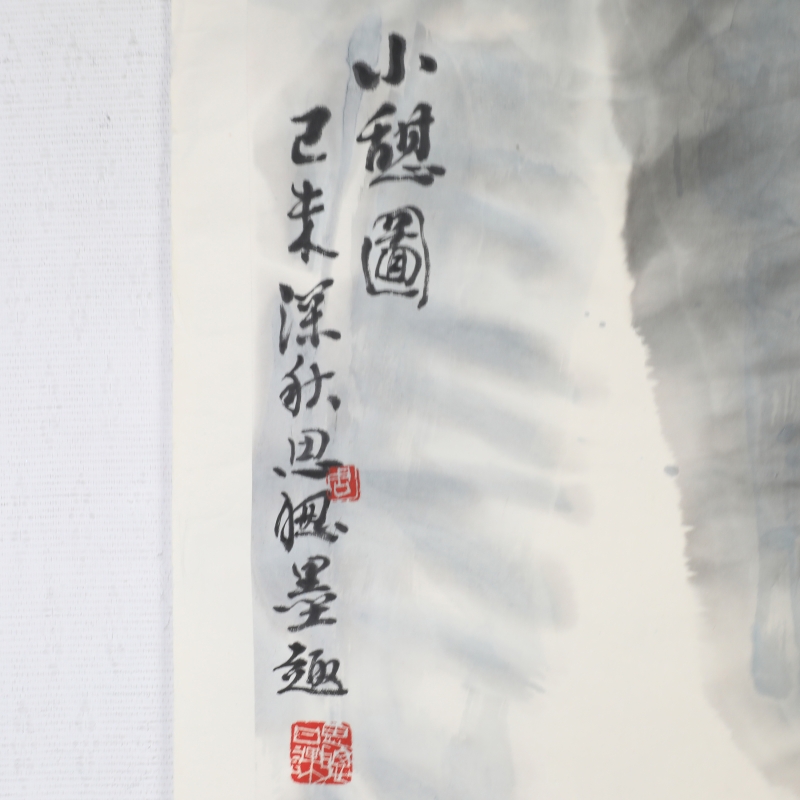 小憩圖
己未深秋思聰墨趣
周